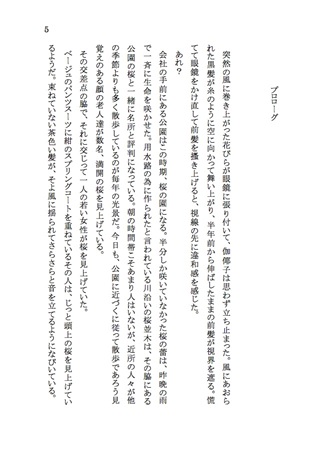 プロローグ
突然の風に巻き上がった花びらが眼鏡に張り付いて、伽耶子は思わず立ち止まった。風にあおら
れた黒髪が糸のように空に向かって舞い上がり、半年前から伸ばしたままの前髪が視界を遮る。慌
てて眼鏡をかけ直して前髪を掻き上げると、視線の先に違和感を感じた。
あれ？
会社の手前にある公園はこの時期、桜の園になる。半分しか咲いていなかった桜の蕾は、昨晩の雨
で一斉に生命を咲かせた。用水路の為に作られたと言われている川沿いの桜並木は、その脇にある
公園の桜と一緒に名所と評判になっている。朝の時間帯こそあまり人はいないが、近所の人々が他
の季節よりも多く散歩しているのが毎年の光景だ。今日も、公園に近づくに従って散歩であろう見
覚えのある顔の老人達が数名、満開の桜を見上げている。
その交差点の脇で、それに交じって一人の若い女性が桜を見上げていた。
ベージュのパンツスーツに紺のスプリングコートを重ねているその人は、じっと頭上の桜を見上げてい
るようだ。束ねていない茶色い髪が、そよ風に揺られてさらさらと音を立てるようになびいている。
5